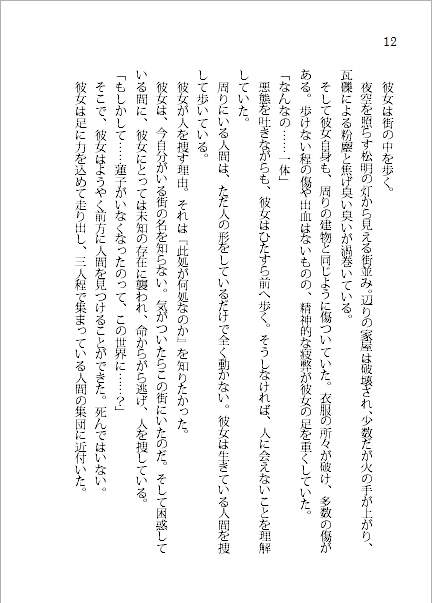 12
彼女は街の中を歩く。
夜空を照らす松明の灯から見える街並み。辺りの家屋は破壊され、少数だが火の手が上がり、
瓦礫による粉塵と焦げ臭い臭いが渦巻いている。
そして彼女自身も、周りの建物と同じように傷ついていた。衣服の所々が破け、多数の傷が
ある。歩けない程の傷や出血はないものの、精神的な疲弊が彼女の足を重くしていた。
「なんなの……一体」
悪態を吐きながらも、彼女はひたすら前へ歩く。そうしなければ、人に会えないことを理解
していた。
周りにいる人間は、ただ人の形をしているだけで全く動かない。彼女は生きている人間を捜
して歩いている。
彼女が人を捜す理由。それは『此処が何処なのか』を知りたかった。
彼女は、今自分がいる街の名を知らない。気がついたらこの街にいたのだ。そして困惑して
いる間に、彼女にとっては未知の存在に襲われ、命からがら逃げ、人を捜している。
「もしかして……蓮子がいなくなったのって、この世界に……？」
そこで、彼女はようやく前方に人間を見つけることができた。死んではいない。
彼女は足に力を込めて走り出し、三人程で集まっている人間の集団に近付いた。